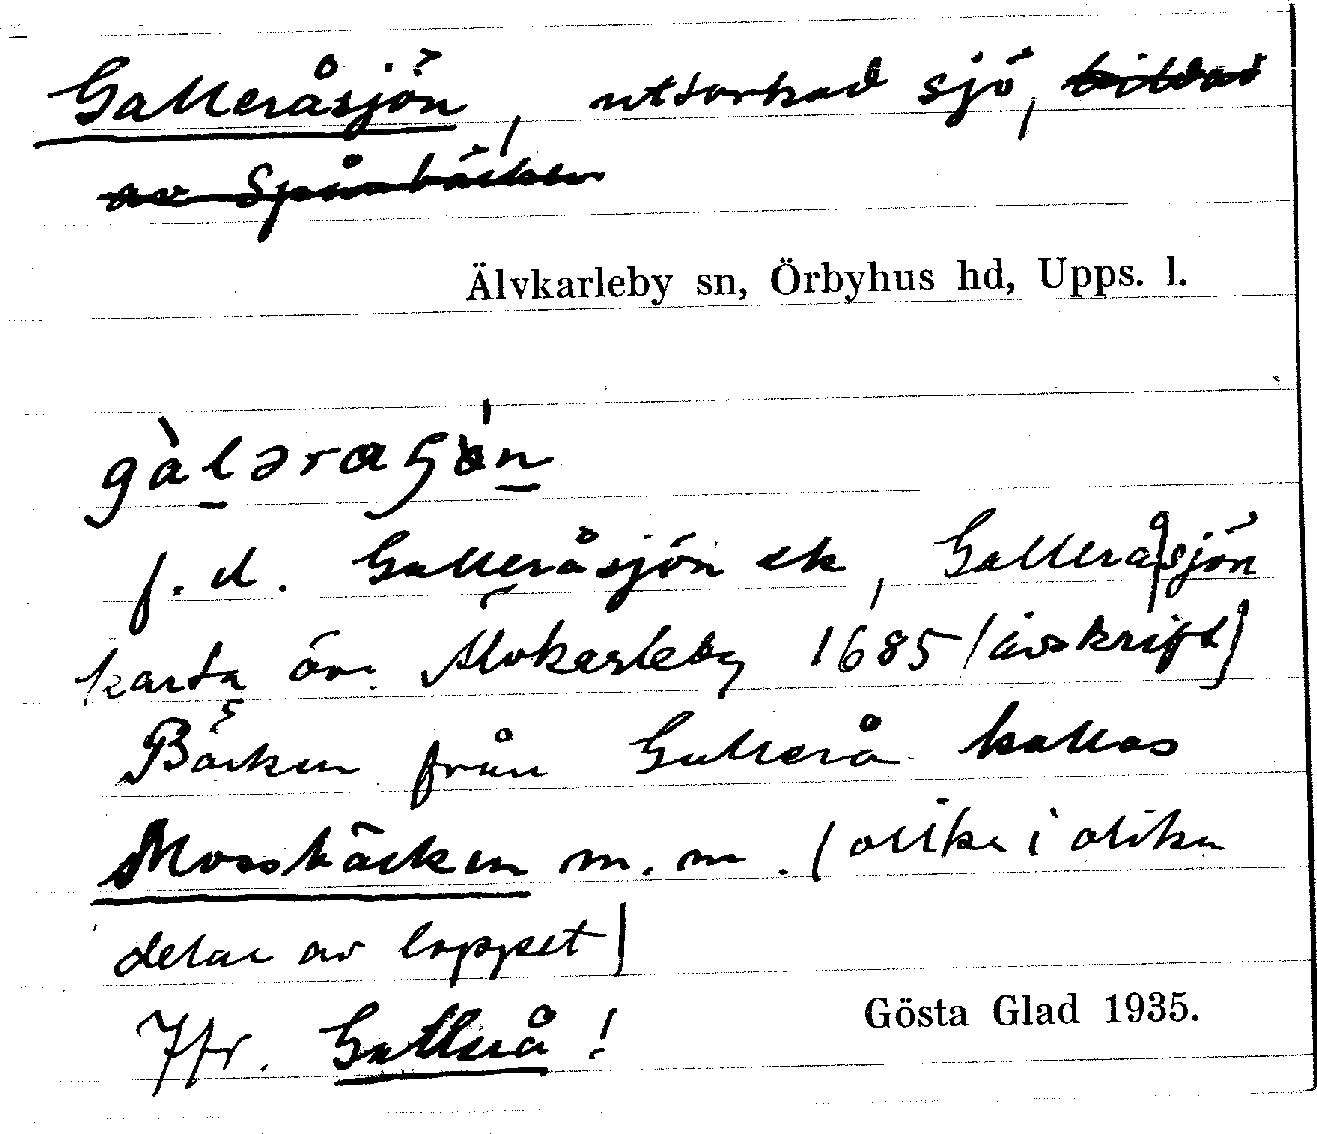 Galleråsjön, uttorkad sjö, bildad
av Spånbäcken
Älvkarleby sn, Örbyhus hd, Upps. l.
gàləraʃön
f.d. Galleråsjön ek, Gallera|sjön
karta öv. Älvkarleby 1685 (avskrift)
Bäcken från Gallerå kallas
Mossbäcken m.m. (olika i olika
delar av loppet)
Jfr. Gallerå!
Gösta Glad 1935.